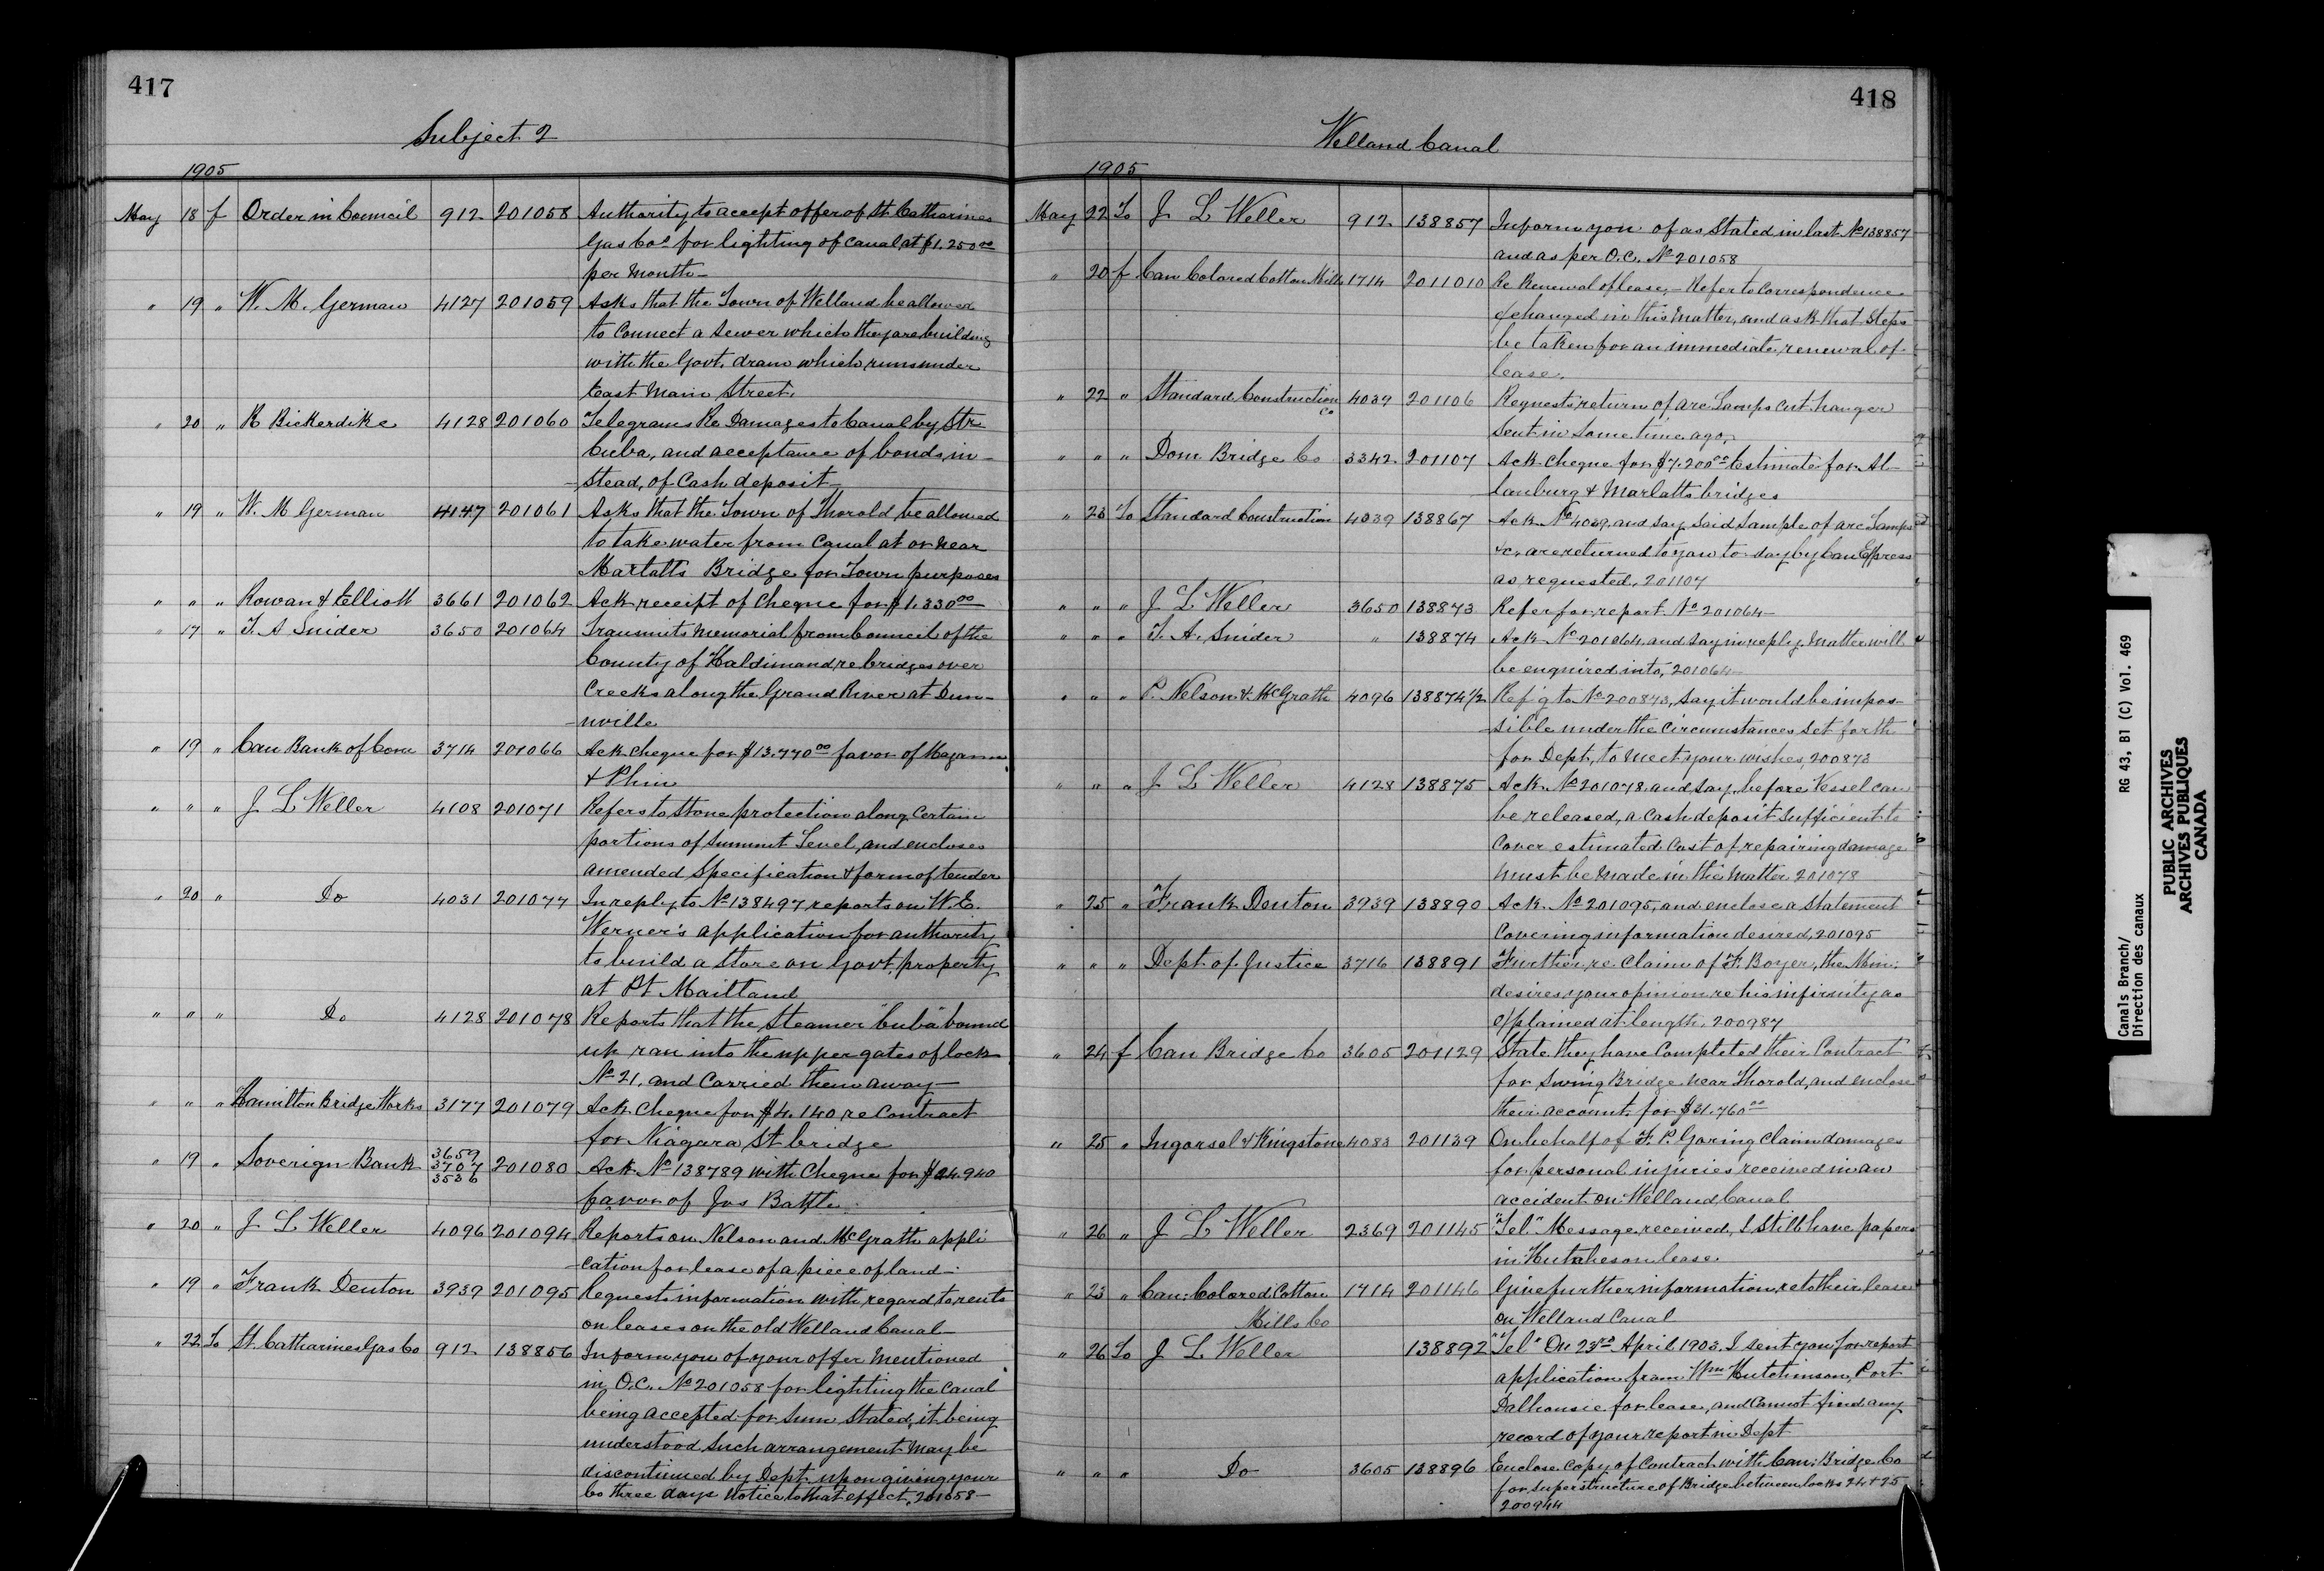 417
Subject 2
1905
May 18 f Order in Council 912 201058 Authority to accept offer of St. Catharines
Gas Co. for lighting of canal, at $1.250 00
per Month—
" 19 " W. M. German 4127 201059 Asks that the Town of Welland be allowed
to connect a sewer which they are building
with the Govt. drain which runs under
East Main Street.
" 20 " R Bickerdike 4128 201060 Telegrams Re Damages to Canal by Str
Cuba, and acceptance of bonds, in-
-stead, of Cash deposit—
" 19 " W. M German 4147 201061 Asks that the Town of Thorold be allowed
to take water from Canal at or near
Marlatts Bridge for Town purposes
" " " Rowan & Elliott 3661 201062 Ack receipt of Cheque for $1.330 00
" 17 " T. A Snider 3650 201064 Transmits Memorial from Council of the
County of Haldimand, re bridges over
Creeks along the Grand River at Dun-
-nville
" 19 " Can Bank of Com 3714 201066 Ack cheque for $13.770 00 favor of
& Phin
" " " J L Weller 4108 201071 Refers to Stone protection along Certain
portions of Summit Level, and encloses
amended Specification & form of tender
" 20 " Do 4031 201077 In reply to No 138497 reports on W. E.
Werner's application for authority
to build a store on Govt. property
at Pt Maitland
" " " Do 4128 201078 Reports that the Steamer "Cuba" bound
up ran into the upper gates of lock
No 21, and Carried them away—
" " " Hamilton Bridge Works 3177 201079 Ack Cheque for $4.140 re Contract
for Niagara St bridge
" 19 " Soverign Bank 3659 3707 3536 201080 Ack No 138789 with Cheque for $24.940
favor of Jos Battle
" 20 " J L Weller 4096 201094 Reports on Nelson and McGrath appli
-cation for lease of a piece of land—
" 19 " Frank Denton 3939 201095 Requests information with regard to rents
on leases on the old Welland Canal—
" 22 To St. Catharines Gas Co 912 138856 Inform you of your offer Mentioned
in O.C. No 201058 for lighting the Canal
being accepted for Sum Stated, it being
understood Such arrangement May be
discontinued by Dept. upon giving your
Co three days notice to that effect, 201058—
418
Welland Canal
1905
May 22 To J L Weller 912 138857 Inform you of as Stated in last No 138857
and as per O.C. No 201058
" 20 f Can Colored Cotton Mills 1714 2011010 Re Renewal of lease,— Refer to Correspondence
exchanged in this Matter, and ask that Steps
be taken for an immediate renewal of
lease.
" 22 " Standard Construction Co 4039 201106 Requests return of arc Lamps Cut hanger
Sent in Some time ago,
" " " Dom Bridge Co 3342 201107 Ack Cheque for $7.200 00 Estimate for Al-
-lanburg & Marlatts bridges
" 23 To Standard Construction Co 4039 138867 Ack No 4039, and Say Said Sample of arc Lamps
&c, are returned to you to-day by Can Express
as requested, 201107
" " " J L Weller 3650 138873 Refer for report No 201064—
" " " T. A. Snider " 138874 Ack No 201064, and Say in reply, Matter will
be enquired into, 201064
" " " P. Nelson & McGrath 4096 138874½ Ref'g to No 200843, Say it would be impos-
-sible under the Circumstances Set forth
for Dept, to Meet your wishes, 200873
" " " J L Weller 4128 138875 Ack No 201078 and Say, before Vessel can
be released, a Cash deposit Sufficient to
Cover estimated Cost of repairing damage
Must be Made in the Matter 201078
" 25 " Frank Denton 3939 138890 Ack No 201095, and enclose a Statement
Covering information desired, 201095
" " " Dept. of Justice 3716 138891 Further re Claim of F. Boyer, the Min:
desires your opinion re his infirmity as
explained at length, 200987
" 24 f Can Bridge Co 3605 201129 State they have Completed their Contract
for Swing Bridge near Thorold, and enclose
their account for $31.760 00
" 25 " Ingersol & Kingstone 4083 201139 On behalf of F. P. Goring Claim damages
for personal injuries received in an
accident on Welland Canal
" 26 " J L Weller 2369 201145 "Tel" Message received, I still have papers
in lease.
" 23 " Can: Colored Cotton Mills Co 1714 201146 Give further information re to their lease
on Welland Canal
" 26 To J L Weller 138892 "Tel" On 23rd April 1903. I sent you for report
application from Wm Hutchinson, Port
Dalhousie for lease, and Cannot find any
record of your report in Dept
" " " Do 3605 138896 Enclose Copy of Contract with Can: Bridge Co
for Superstructure of Bridge between locks 24 & 25
200944
Canals Branch/
Direction des canaux
RG 43, B1 (C) Vol. 469
PUBLIC ARCHIVES
ARCHIVES PUBLIQUES
CANADA